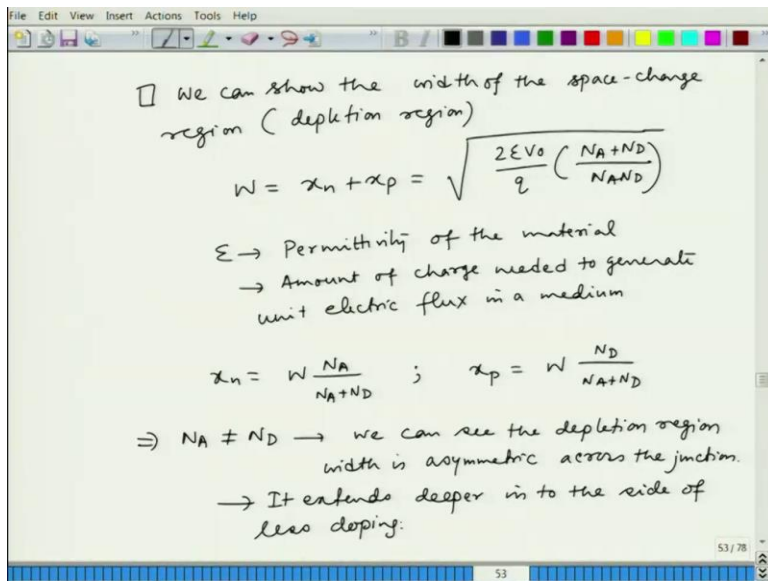 File Edit View Insert Actions Tools Help
□ We can show the width of the space-charge
region (depletion region)
W = xn + xp = √(2εV0/q (NA+ND/NAND))
ε → Permittivity of the material
→ Amount of charge needed to generate
unit electric flux in a medium
xn = W NA/NA+ND ; xp = W ND/NA+ND
⇒ NA ≠ ND → we can see the depletion region
width is asymmetric across the junction.
→ It extends deeper in to the side of
less doping.
53 / 78
53